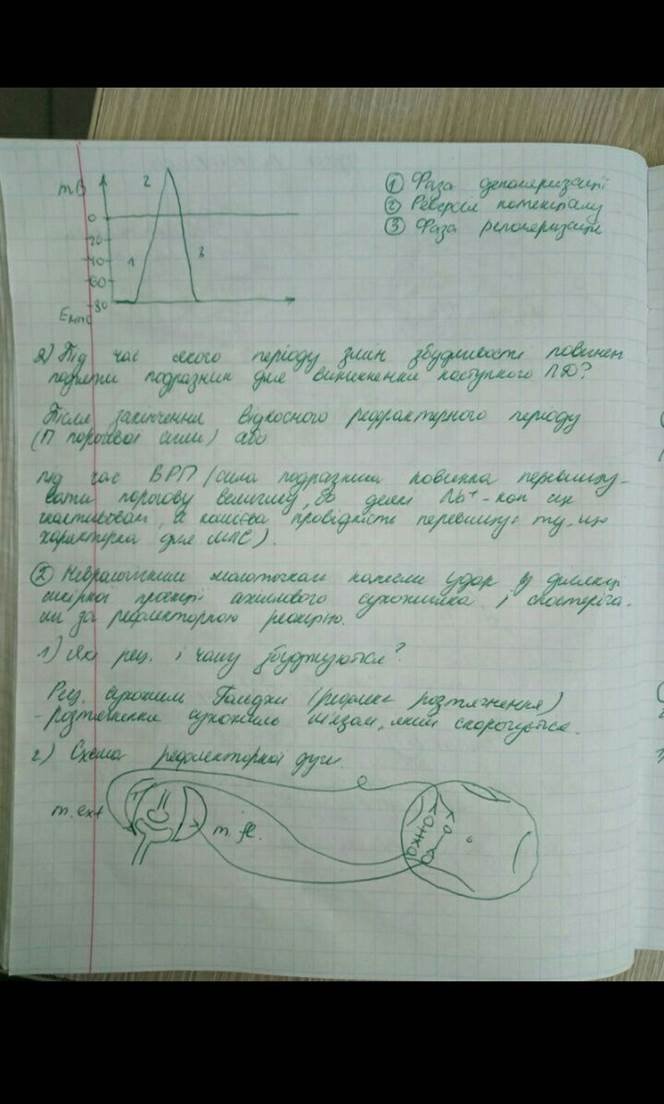 mВ
0
20
40
60
80
Емпс
1
2
3
① Фаза деполяризації
② Реверсія потенціалу
③ Фаза реполяризації
2) Під час якого періоду змін збудливості повинен
подіяти подразник для виникнення наступного ПД?
Після закінчення відносного рефрактерного періоду
(П порогової сили) або
під час ВРП (сила подразника повинна перевищу-
вати порогову величину, бо деякі Na⁺-кан ще
інактивовані, а калієва провідність перевищує ту, що
характерна для МПС).
② Неврологічним молоточком нанесли удар в ділянці
шкірної проекції ахіллового сухожилка і спостеріга-
ли за рефлекторною реакцією.
1) Які рец. і чому збуджуються?
Рец. сухожил Гольджи (рефлекс розтягнення)
- розтягнення сухожилка м'язом, який скорочується.
2) Схема рефлекторної дуги.
m. ext
m. fl.